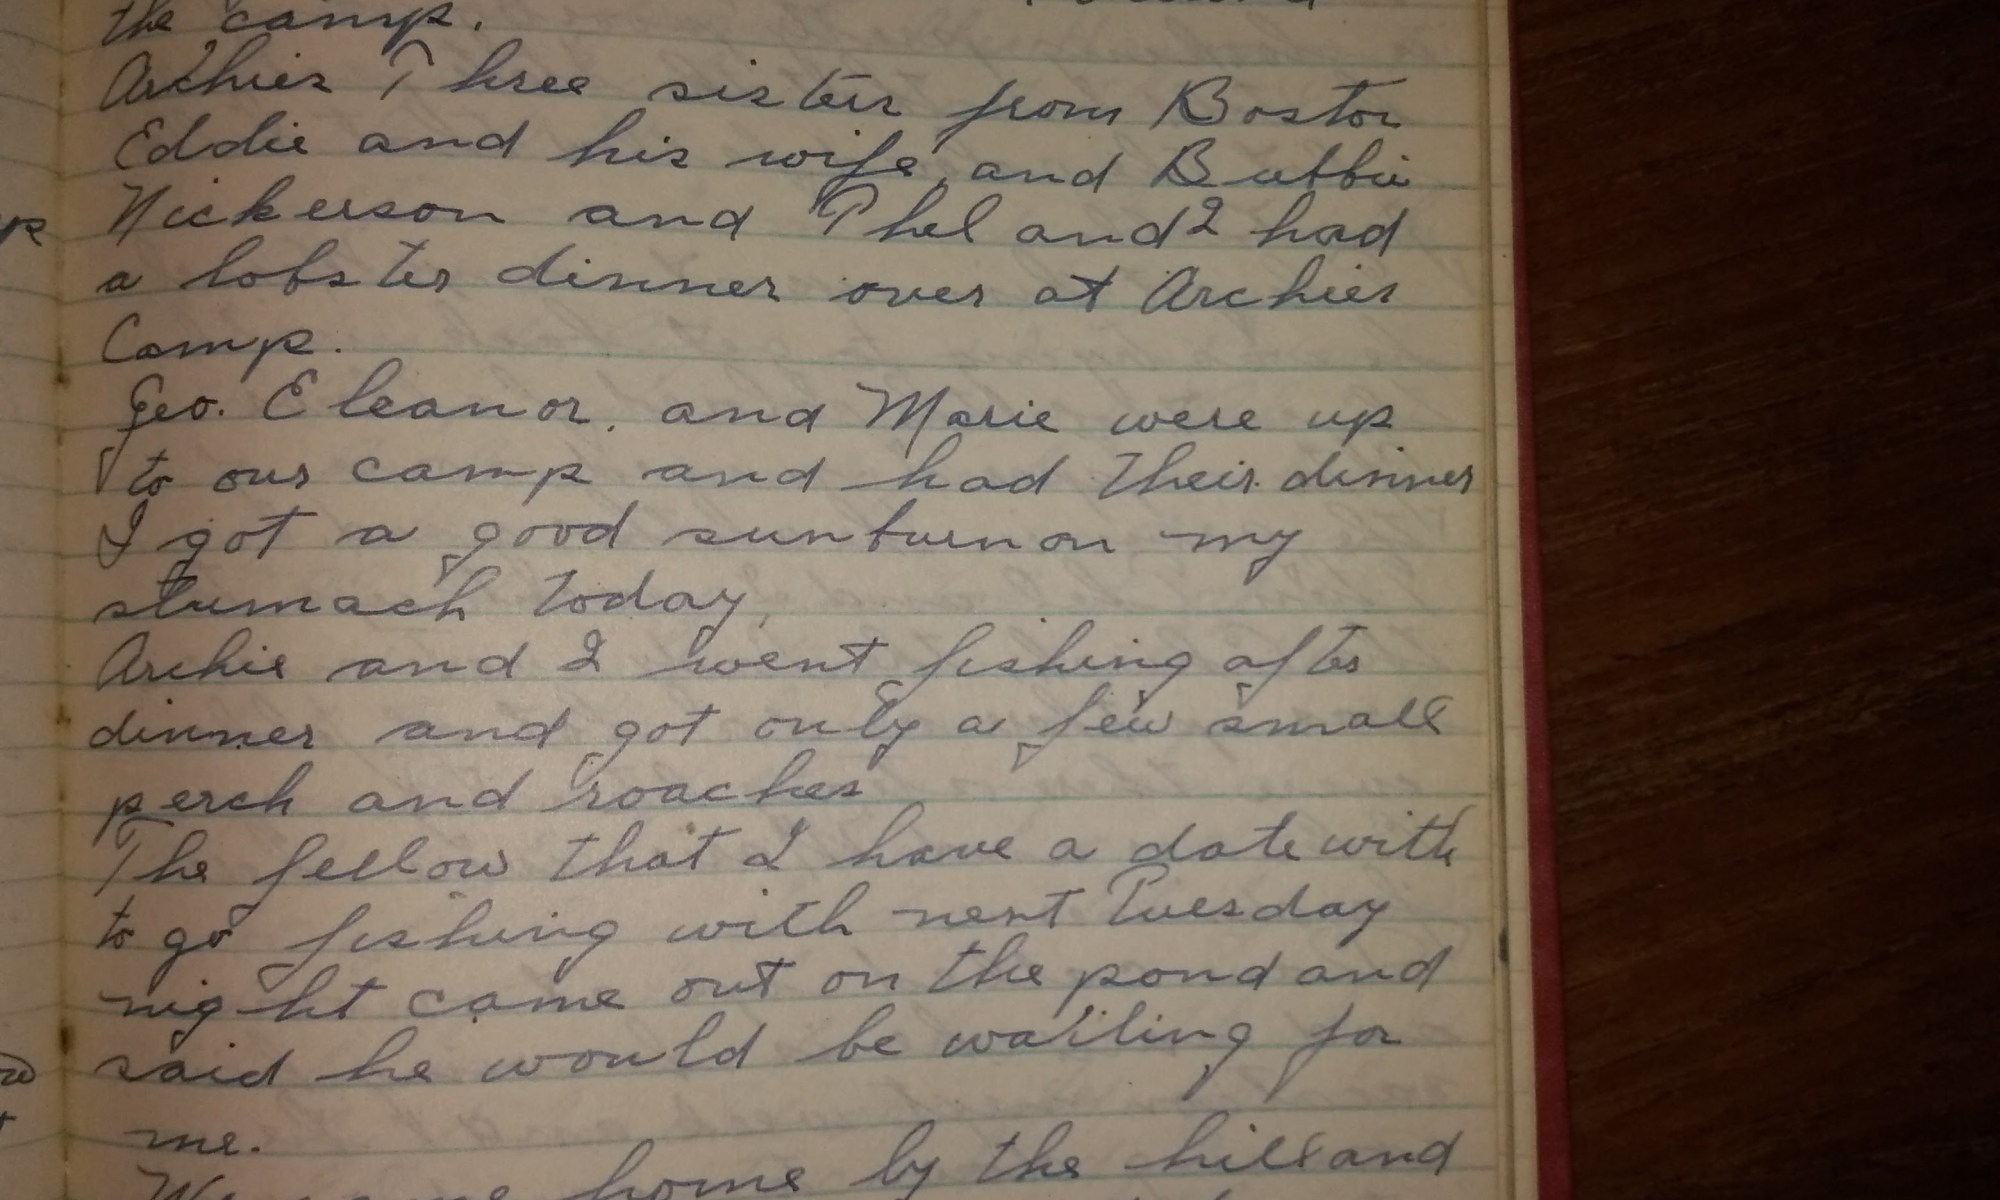 the camp.
Archies Three sisters from Boston
Eddie and his wife, and Bubbie
Nickerson and Phel and I had
a lobster dinner over at Archies
Camp.
Geo. Eleanor, and Marie were up
to our camp and had their dinner
I got a good sunburn on my
stumach today,
Archie and I went fishing after
dinner and got only a few small
perch and roaches
The fellow that I have a date with
to go fishing with next Tuesday
night came out on the pond and
said he would be waiting for
me.
We came home by the hill and